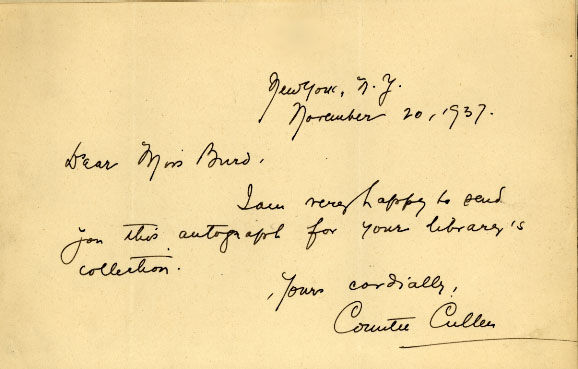 New York, N.Y.
November 20, 1937.
Dear Miss Burd,
I am very happy to send
you this autograph for your library's
collection.
Yours cordially,
Countee Cullen